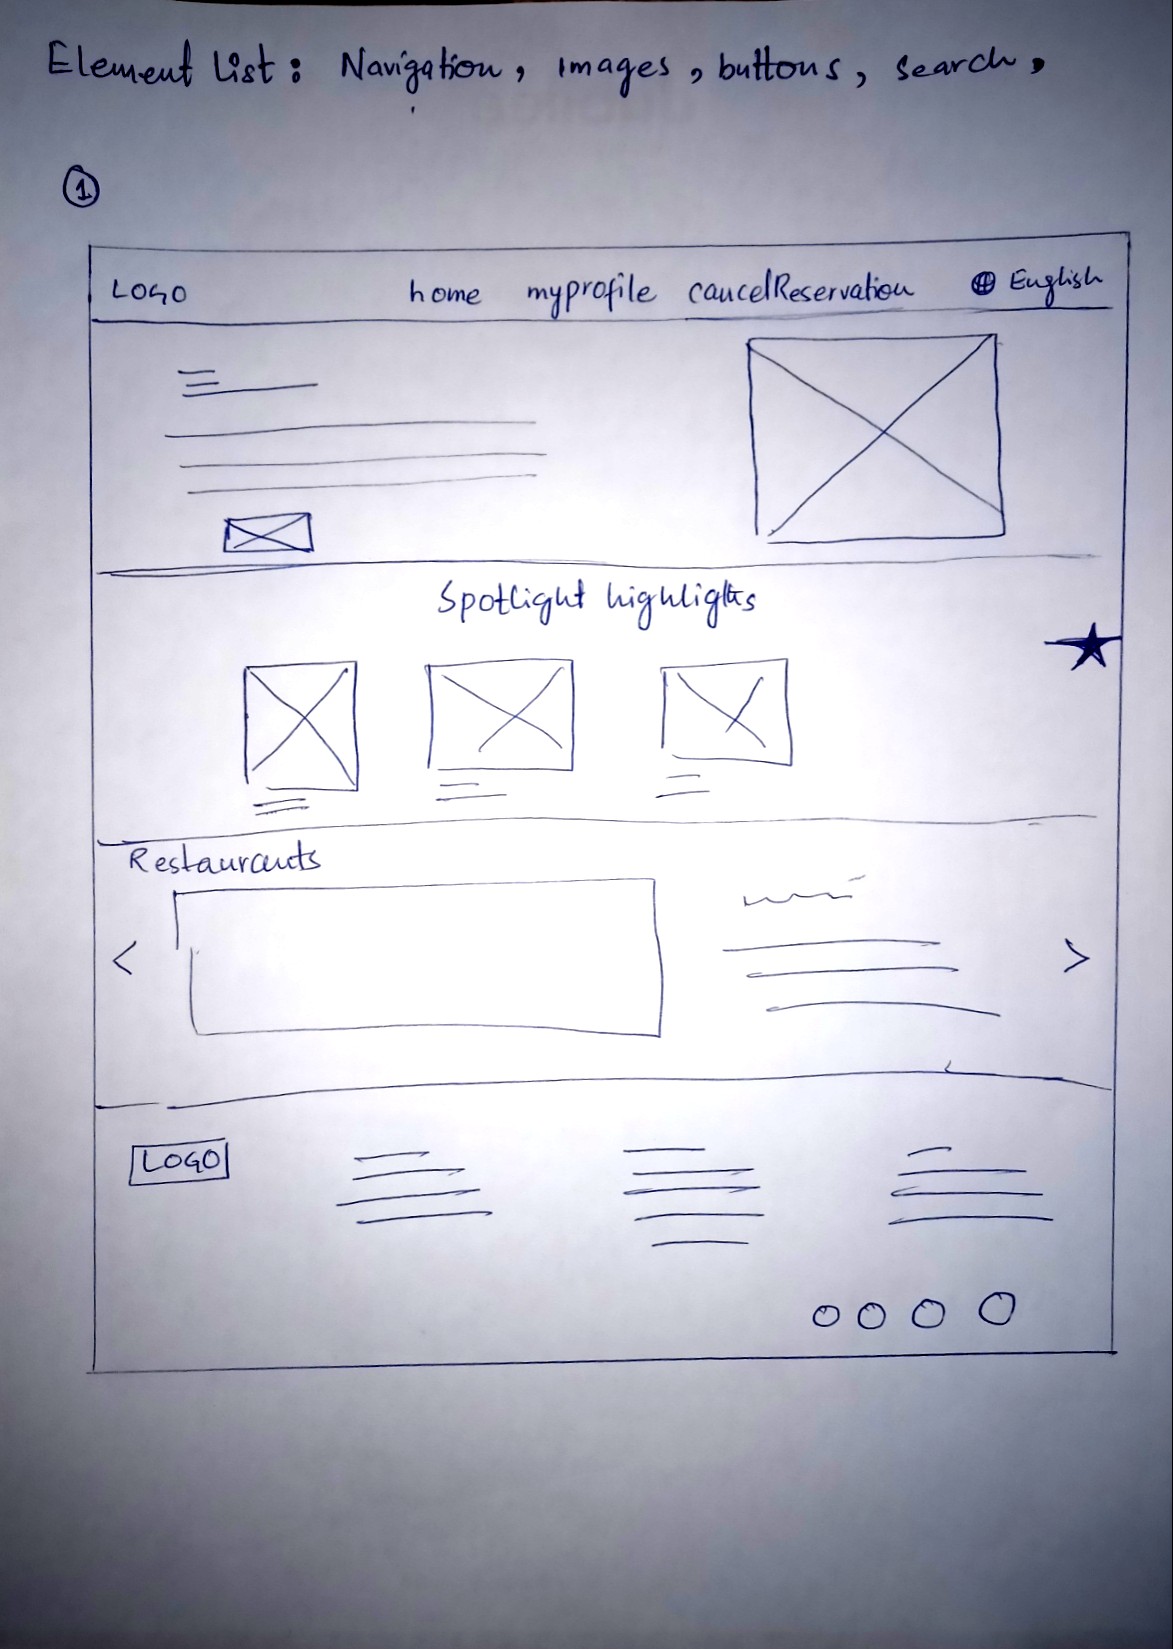 Element List : Navigation, images, buttons, search,
1
LOGO home myprofile cancelReservation English
Spotlight highlights
Restaurants
< >
LOGO